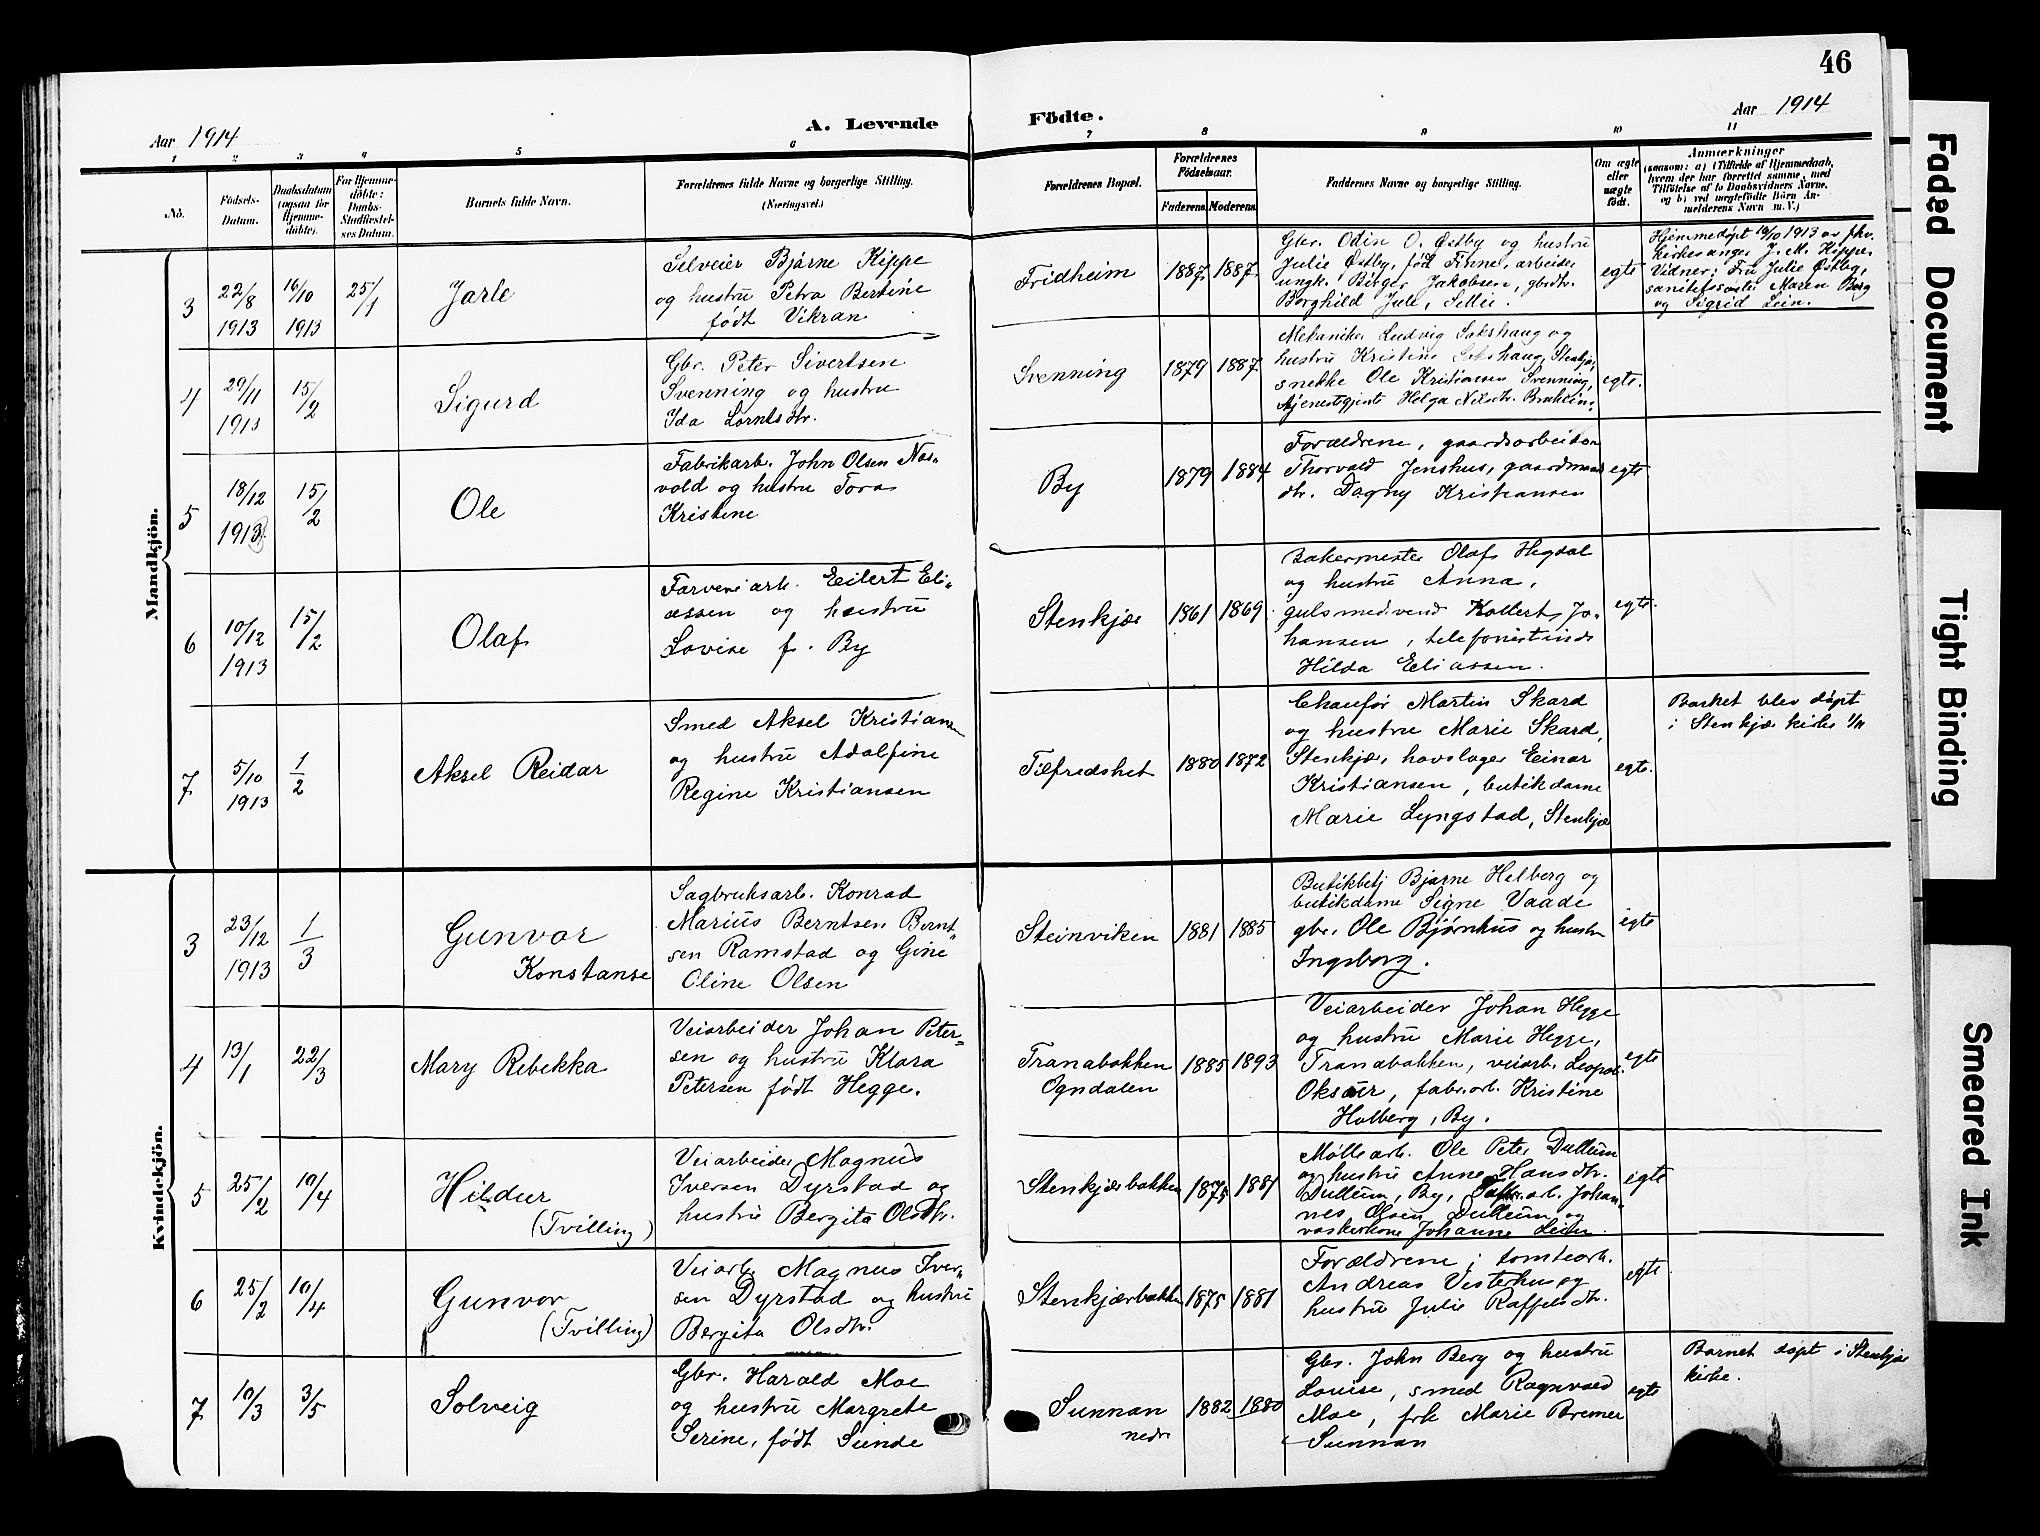 46
Aar 1914
A. Levende
Födte.
Aar 1914
1 2 3 4 5 6 7 8 9 10 11
No.
Födsels-
Datum.
Daabsdatum
(ogsaa for
Hjemme-
döbte).
For Hjemme-
döbte:
Daabs-
Stadfæstel-
ses Datum.
Barnets fulde Navn.
Forældrenes fulde Navne og borgerlige Stilling.
(Næringsvei.)
Forældrenes Bopæl.
Forældrenes
Födselsaar.
Faderens. Moderens.
Faddernes Navne og borgerlige Stilling.
Om ægte
eller
uægte
født.
Anmærkninger
(saasom: a) i Tilfælde af Hjemmedaab,
hvem der har forrettet samme, med
Tilføielse af to Daabsvidners Navne,
og b) ved uægtefödte Börn An-
melderens Navn m. V.)
Mandkjön.
3
22/8
1913
16/10
1913
25/1
Jarle
Selveier Bjarne Kippe
og hustru Petra Bertine
født Vikran
Fridheim
1887 1887
Gbr. Odin O. Østby og hustru
Julie Østby, født Finne, arbeider
ungk. Birger Jakobsen, gbrdtr.
Borghild Jule, Sellie.
egte
Hjemmedøpt 16/10 1913 av fhv.
kirkesanger J. M. Hippe.
Vidner: Fru Julie Østby,
Maren Berg
og Sigrid Lein.
4
29/11
1913
15/2
Sigurd
Gbr. Peter Sivertsen
Svenning og hustru
Ida Lorntsdtr.
Svenning
1879 1887
Mekaniker Ludvig Sakshaug og
hustru Kristine Sakshaug, Stenkjær,
snekker Ole Kristiansen Svenning,
tjenestepjente Helga Nilsdtr.
egte.
5
18/12
1913
15/2
Ole
Fabrikarb. John Olsen Nas-
vold og hustru Tora
Kristine
By
1879 1884
Forældrene, gaardsarbeider
Thorvald Jenshus, gaardmand
dtr. Dagny Kristiansen
egte.
6
10/12
1913
15/2
Olaf
Farveriarb. Eilert Eli-
assen og hustru
Lovise f. By
Stenkjær
1861 1869
Bakermester Olaf Hegdal
og hustru Anna,
gulsmedsvend Kollert Jo-
hansen, telefonistinde
Hilda Eliassen.
egte.
7
5/10
1913
1/2
Aksel Reidar
Smed Aksel Kristiansen
og hustru Adolfine
Regine Kristiansen
Tilfredshet
1880 1872
Chaufør Martin Skard
og hustru Marie Skard,
Stenkjær, hovslager Einar
Kristiansen, butikdame
Marie Lyngstad, Stenkjær
egte.
Barnet blev døpt
i Stenkjær kirke 1/11
Kvindekjön.
3
23/12
1913
1/3
Gunvor
Konstanse
Sagbruksarb. Konrad
Marius Berntsen Bernt-
sen Ramstad og Gine
Oline Olsen
Steinviken
1881 1885
Butikbetj Bjarne Helberg og
butikdame Signe Vaade
gbr. Ole Bjørnhus og hustru
Ingeborg.
egte
4
13/1
22/3
Mary Rebekka
Veiarbeider Johan Peter-
sen og hustru Klara
Petersen født Hegge.
Tranabakken
Ogndalen
1885 1893
Veiarbeider Johan Hegge
og hustru Marie Hegge,
Tranabakken, veiarb. Leopold
fabr.arb. Kristine
Holberg, By.
egte
5
25/2
10/4
Hildur
(Tvilling)
Veiarbeider Magnus
Iversen Dyrstad og
hustru Bergita Olsdtr.
Stenkjærbakken
1875 1881
Møllearb. Ole Peter Dullum
og hustru Anne Hansdtr.
Dullum, By, arb. Johan-
nes Olsen Dullum og
vaskerkone Johanne Leien.
egte
6
25/2
10/4
Gunvor
(Tvilling)
Veiarb. Magnus Iver-
sen Dyrstad og hustru
Bergita Olsdtr.
Stenkjærbakken
1875 1881
Forældrene; tomtearb.
Andreas Vesterhus og
hustru Julie Raffelsdtr.
egte
7
10/3
3/5
Solveig
Gbr. Harald Moe
og hustru Margrete
Serine, født Sunde
Sunnan
nedre
1882 1880
Gbr. John Berg og hustru
Louise, smed Ragnvald
Moe, frk Marie Bremer
Sunnan
egte
Barnet døpt i Stenkjær
kirke.
Faded Document
Tight Binding
Smeared Ink